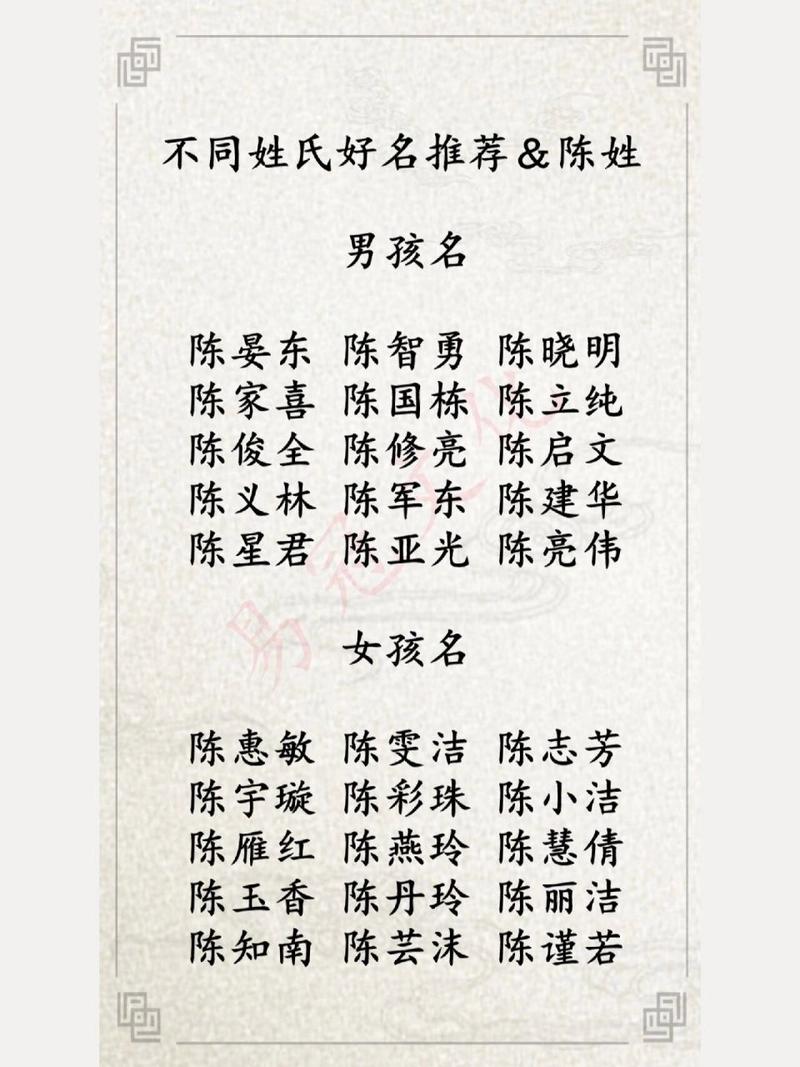 不同姓氏好名推荐&陈姓
男孩名
陈晏东 陈智勇 陈晓明
陈家喜 陈国栋 陈立纯
陈俊全 陈修亮 陈启文
陈义林 陈军东 陈建华
陈星君 陈亚光 陈亮伟
女孩名
陈惠敏 陈雯洁 陈志芳
陈宇璇 陈彩珠 陈小洁
陈雁红 陈燕玲 陈慧倩
陈玉香 陈丹玲 陈丽洁
陈知南 陈芸沫 陈谨若
易冠文化